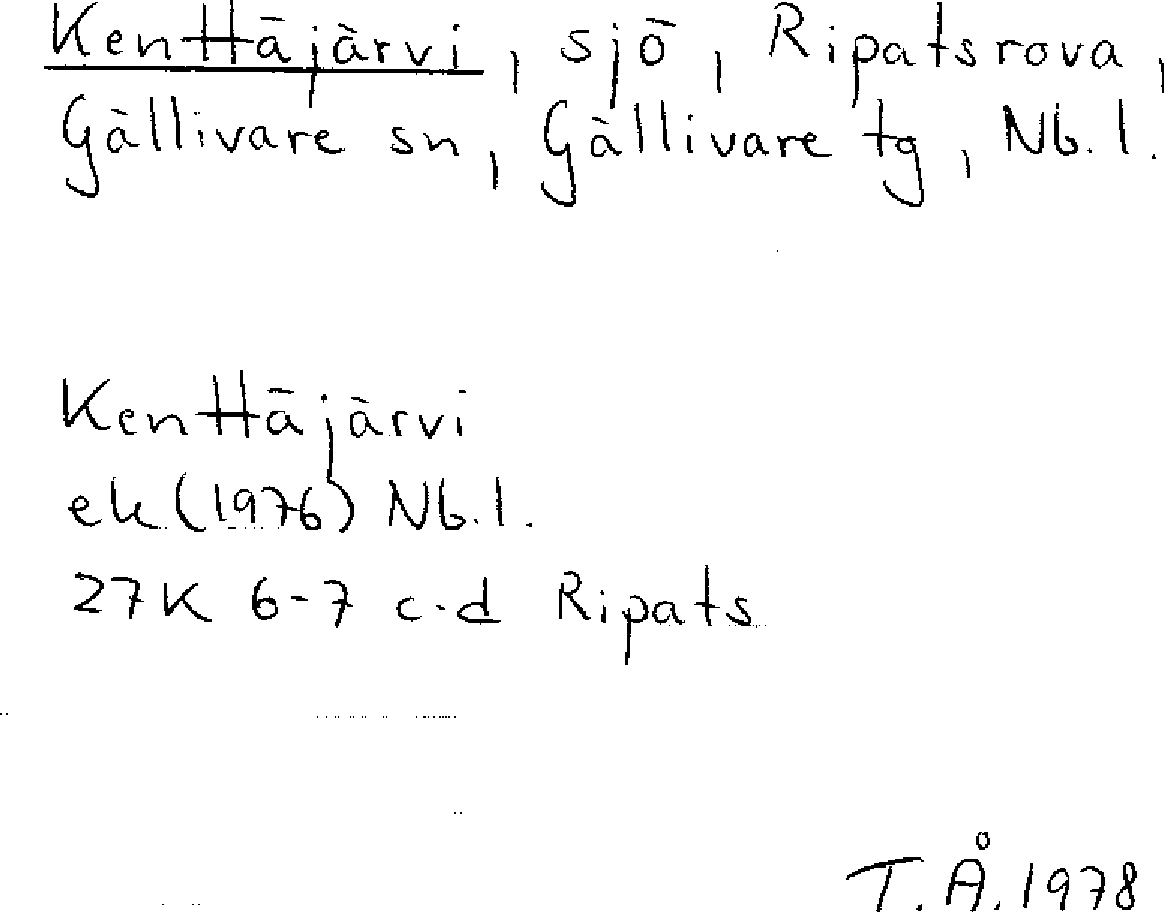 Kenttäjärvi, sjö, Ripatsrova,
Gällivare sn, Gällivare tg, Nb. l.
Kenttäjärvi
ek (1976) Nb. l.
27K 6-7 c-d Ripats
T. Å. 1978